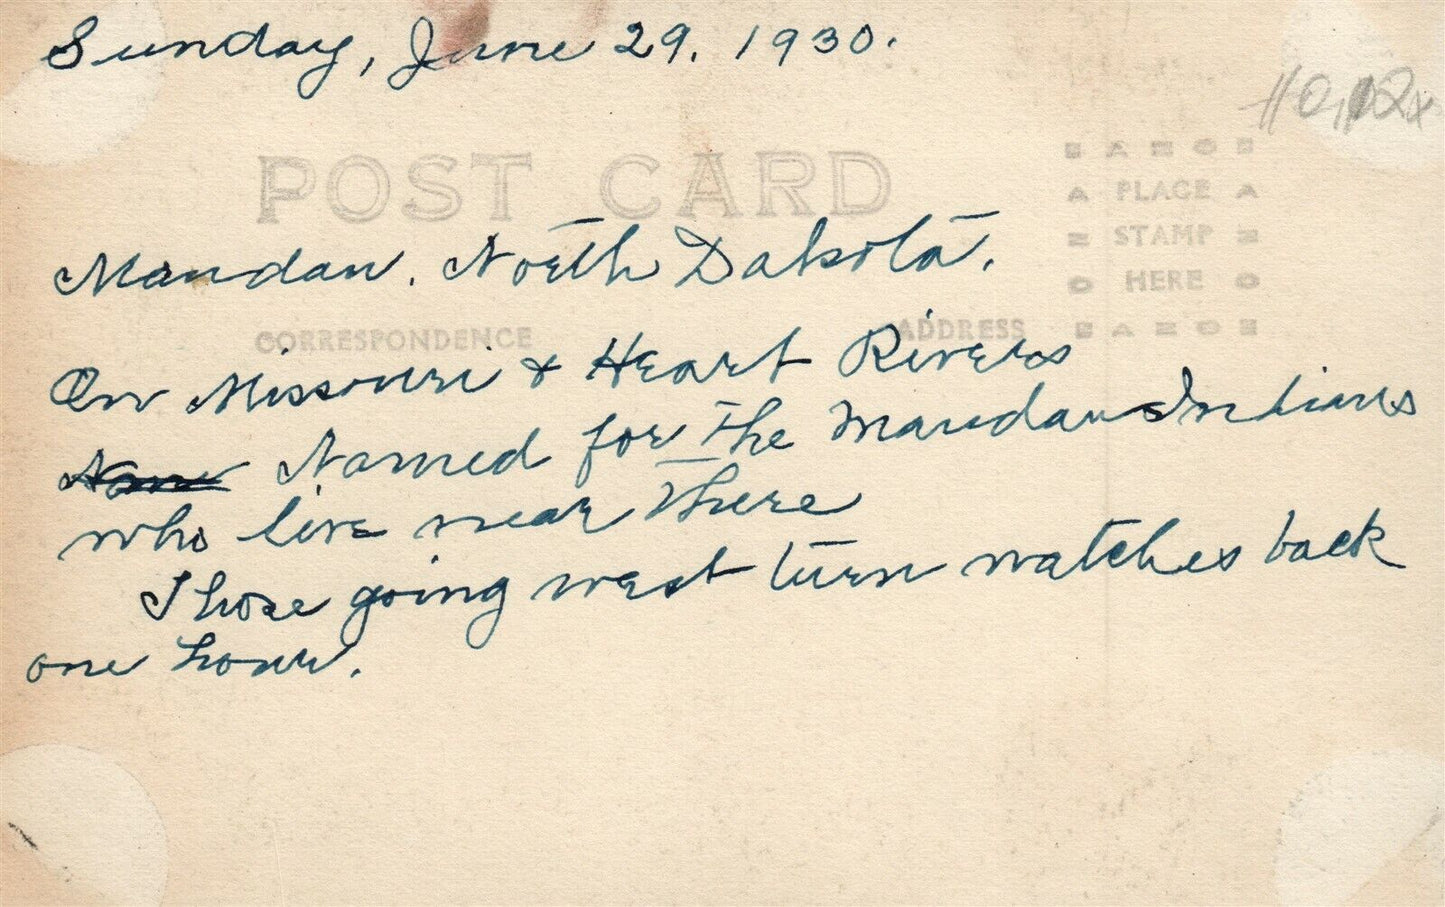 Sunday, June 29. 1930.
POST CARD
PLACE
STAMP
HERE
Mandan. North Dakota.
CORRESPONDENCE
ADDRESS
On Missouri & Heart Rivers
Named for the Mandans Indians
who live near there
Those going west turn watches back
one hour.